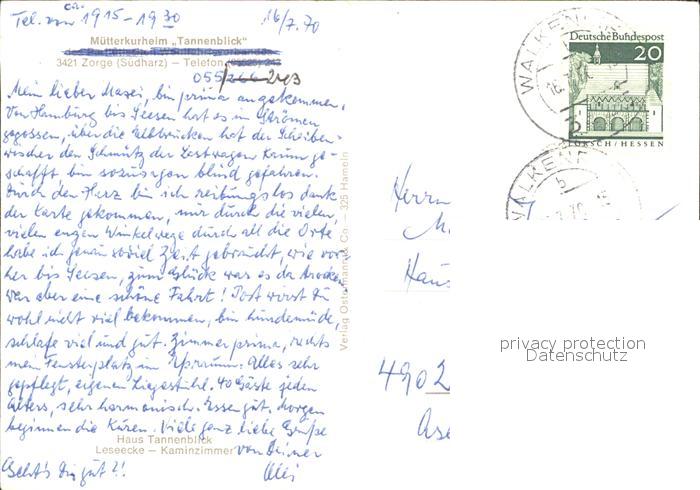 Tel. von ca. 19¹⁵-19³⁰ 16/7.70
Mütterkurheim „Tannenblick"
3421 Zorge (Südharz) – Telefon
055/ 243
Mein lieber bin prima angekommen.
Von Hamburg bis Seesen hat es in Strömen
gegossen, über die Elbbrücken hat der Scheiben-
wischer den Schmutz der Lastwagen kaum ge-
schafft bin sozusagen blind gefahren.
Durch den Harz bin ich reibungslos dank
der Karte gekommen, nur durch die vielen,
vielen engen Winkelwege durch all die Orte
habe ich genau soviel Zeit gebraucht, wie vor-
her bis Seesen, zum Glück war es da trocken
war aber eine schöne Fahrt! Post wirst Du
wohl nicht viel bekommen, bin hundemüde,
schlafe viel und gut. Zimmer prima, rechts
mein Fensterplatz im Alles sehr
gepflegt, eigenen Liegestuhl. 40 Gäste jeden
Alters, sehr harmonisch. Essen gut, morgen
beginnen die Kuren. Viele ganz liebe Grüße
Haus Tannenblick
Leseecke – Kaminzimmer von Deiner
Geht's Dir gut?!
Verlag Ostermann & Co. – 325 Hameln
Deutsche Bundespost
20
LORSCH/HESSEN
WALKEN
b
WALKEN
b
Herrn
M.
Haus
4902
privacy protection
Datenschutz